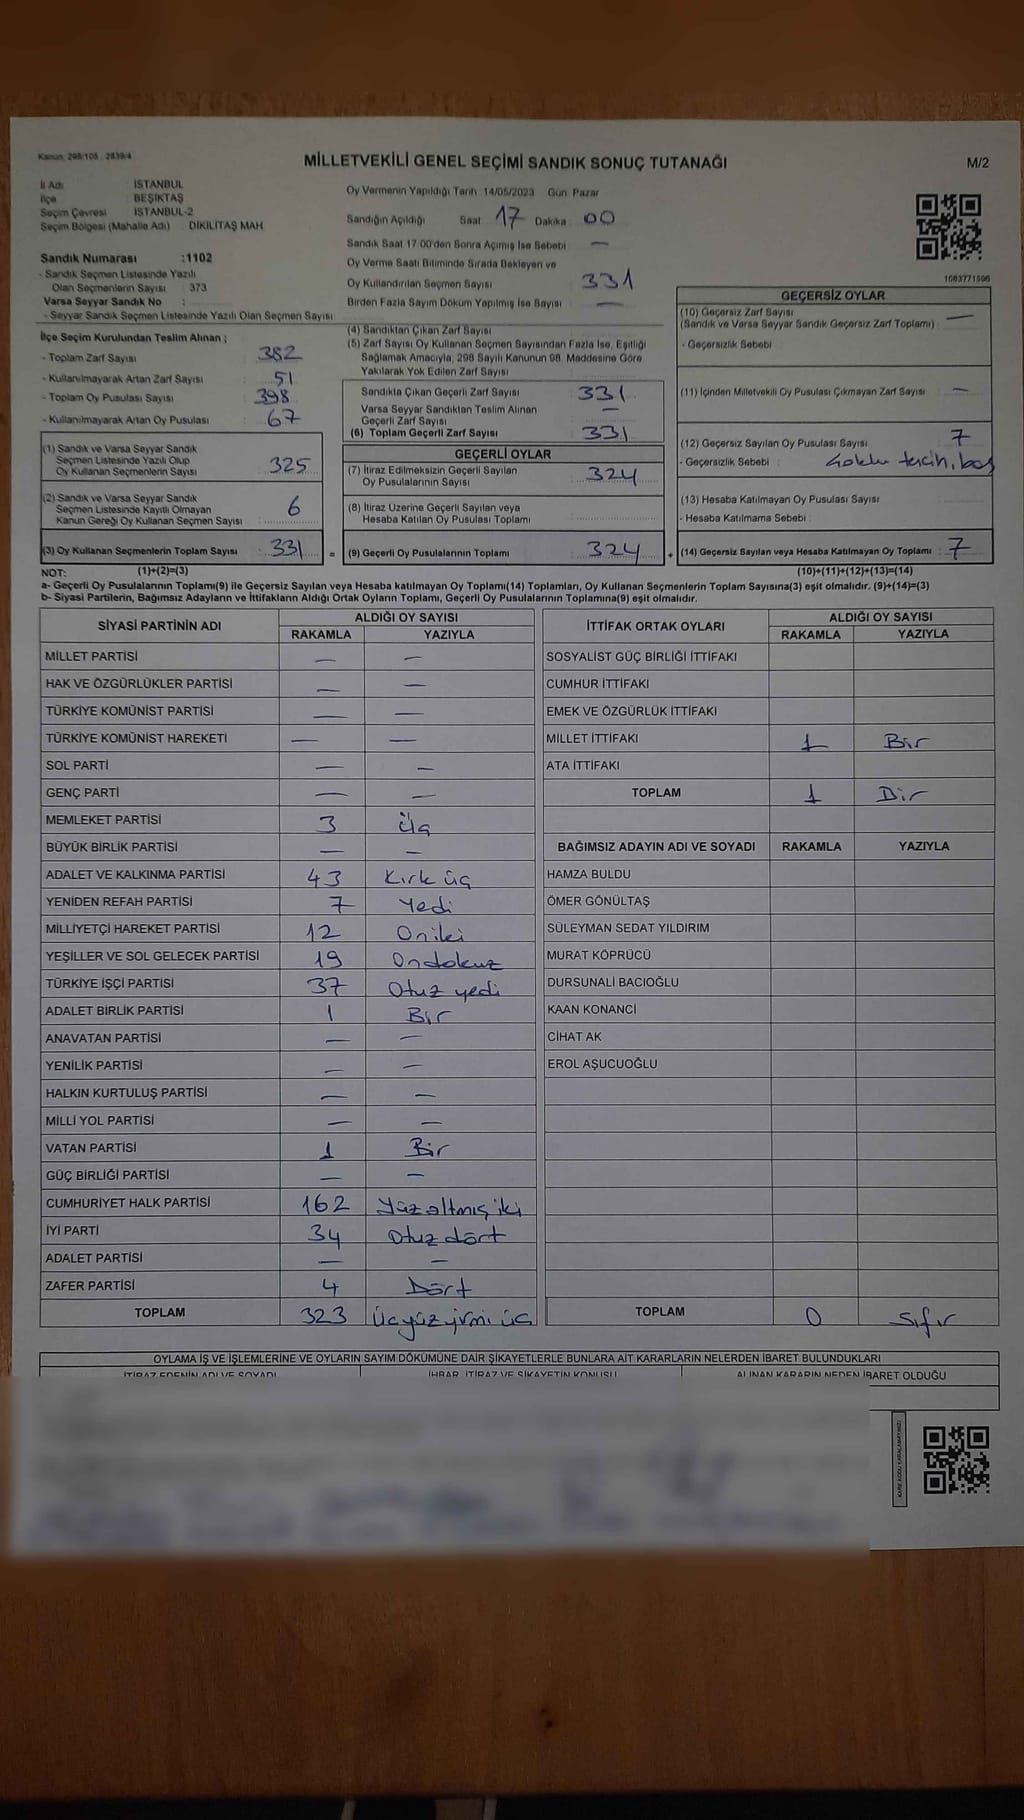 Kanun: 298/105 , 2839/4
MİLLETVEKİLİ GENEL SEÇİMİ SANDIK SONUÇ TUTANAĞI
M/2
İl Adı : İSTANBUL
İlçe : BEŞİKTAŞ
Seçim Çevresi : İSTANBUL-2
Seçim Bölgesi (Mahalle Adı) : DİKİLİTAŞ MAH
Sandık Numarası :1102
- Sandık Seçmen Listesinde Yazılı
Olan Seçmenlerin Sayısı : 373
Varsa Seyyar Sandık No :
- Seyyar Sandık Seçmen Listesinde Yazılı Olan Seçmen Sayısı :
Oy Vermenin Yapıldığı Tarih 14/05/2023 Gün: Pazar
Sandığın Açıldığı Saat 17 Dakika 00
Sandık Saat 17 00'den Sonra Açımış İse Sebebi : —
Oy Verme Saati Bitiminde Sırada Bekleyen ve
Oy Kullandırılan Seçmen Sayısı 331
Birden Fazla Sayım Döküm Yapılmış İse Sayısı : —
1083771596
İlçe Seçim Kurulundan Teslim Alınan ;
- Toplam Zarf Sayısı : 382
- Kullanılmayarak Artan Zarf Sayısı : 51
- Toplam Oy Pusulası Sayısı : 398
- Kullanılmayarak Artan Oy Pusulası : 67
(1) Sandık ve Varsa Seyyar Sandık
Seçmen Listesinde Yazılı Olup
Oy Kullanan Seçmenlerin Sayısı : 325
(2) Sandık ve Varsa Seyyar Sandık
Seçmen Listesinde Kayıtlı Olmayan
Kanun Gereği Oy Kullanan Seçmen Sayısı : 6
(3) Oy Kullanan Seçmenlerin Toplam Sayısı : 331 =
(4) Sandıktan Çıkan Zarf Sayısı :
(5) Zarf Sayısı Oy Kullanan Seçmen Sayısından Fazla İse, Eşitliği
Sağlamak Amacıyla, 298 Sayılı Kanunun 98. Maddesine Göre
Yakılarak Yok Edilen Zarf Sayısı :
Sandıkta Çıkan Geçerli Zarf Sayısı : 331
Varsa Seyyar Sandıktan Teslim Alınan
Geçerli Zarf Sayısı : —
(6) Toplam Geçerli Zarf Sayısı : 331
GEÇERLİ OYLAR
(7) İtiraz Edilmeksizin Geçerli Sayılan
Oy Pusulalarının Sayısı : 324
(8) İtiraz Üzerine Geçerli Sayılan veya
Hesaba Katılan Oy Pusulası Toplamı :
(9) Geçerli Oy Pusulalarının Toplamı : 324 +
GEÇERSİZ OYLAR
(10) Geçersiz Zarf Sayısı
(Sandık ve Varsa Seyyar Sandık Geçersiz Zarf Toplamı) : —
- Geçersizlik Sebebi :
(11) İçinden Milletvekili Oy Pusulası Çıkmayan Zarf Sayısı : —
(12) Geçersiz Sayılan Oy Pusulası Sayısı : 7
- Geçersizlik Sebebi : tercih, boş
(13) Hesaba Katılmayan Oy Pusulası Sayısı :
- Hesaba Katılmama Sebebi :
(14) Geçersiz Sayılan veya Hesaba Katılmayan Oy Toplamı : 7
NOT: (1)+(2)=(3) (10)+(11)+(12)+(13)=(14)
a- Geçerli Oy Pusulalarının Toplamı(9) ile Geçersiz Sayılan veya Hesaba katılmayan Oy Toplamı(14) Toplamları, Oy Kullanan Seçmenlerin Toplam Sayısına(3) eşit olmalıdır. (9)+(14)=(3)
b- Siyasi Partilerin, Bağımsız Adayların ve İttifakların Aldığı Ortak Oyların Toplamı, Geçerli Oy Pusulalarının Toplamına(9) eşit olmalıdır.
SİYASİ PARTİNİN ADI ALDIĞI OY SAYISI
RAKAMLA YAZIYLA
MİLLET PARTİSİ — —
HAK VE ÖZGÜRLÜKLER PARTİSİ — —
TÜRKİYE KOMÜNİST PARTİSİ — —
TÜRKİYE KOMÜNİST HAREKETİ — —
SOL PARTİ — —
GENÇ PARTİ — —
MEMLEKET PARTİSİ 3 Üç
BÜYÜK BİRLİK PARTİSİ — —
ADALET VE KALKINMA PARTİSİ 43 Kırk üç
YENİDEN REFAH PARTİSİ 7 Yedi
MİLLİYETÇİ HAREKET PARTİSİ 12 Oniki
YEŞİLLER VE SOL GELECEK PARTİSİ 19 Ondokuz
TÜRKİYE İŞÇİ PARTİSİ 37 Otuz yedi
ADALET BİRLİK PARTİSİ 1 Bir
ANAVATAN PARTİSİ — —
YENİLİK PARTİSİ — —
HALKIN KURTULUŞ PARTİSİ — —
MİLLİ YOL PARTİSİ — —
VATAN PARTİSİ 1 Bir
GÜÇ BİRLİĞİ PARTİSİ — —
CUMHURİYET HALK PARTİSİ 162 Yüz altmış iki
İYİ PARTİ 34 Otuz dört
ADALET PARTİSİ — —
ZAFER PARTİSİ 4 Dört
TOPLAM 323 Üçyüzyirmi üç
İTTİFAK ORTAK OYLARI ALDIĞI OY SAYISI
RAKAMLA YAZIYLA
SOSYALİST GÜÇ BİRLİĞİ İTTİFAKI
CUMHUR İTTİFAKI
EMEK VE ÖZGÜRLÜK İTTİFAKI
MİLLET İTTİFAKI 1 Bir
ATA İTTİFAKI
TOPLAM 1 Bir
BAĞIMSIZ ADAYIN ADI VE SOYADI RAKAMLA YAZIYLA
HAMZA BULDU
ÖMER GÖNÜLTAŞ
SÜLEYMAN SEDAT YILDIRIM
MURAT KÖPRÜCÜ
DURSUNALİ BACIOĞLU
KAAN KONANCİ
CİHAT AK
EROL AŞUCUOĞLU
TOPLAM 0 Sıfır
OYLAMA İŞ VE İŞLEMLERİNE VE OYLARIN SAYIM DÖKÜMÜNE DAİR ŞİKAYETLERLE BUNLARA AİT KARARLARIN NELERDEN İBARET BULUNDUKLARI
İTİRAZ EDENİN ADI VE SOYADI İHBAR, İTİRAZ VE ŞİKAYETİN KONUSU ALINAN KARARIN NEDEN İBARET OLDUĞU
KARE KODU KARALAMAYINIZ!